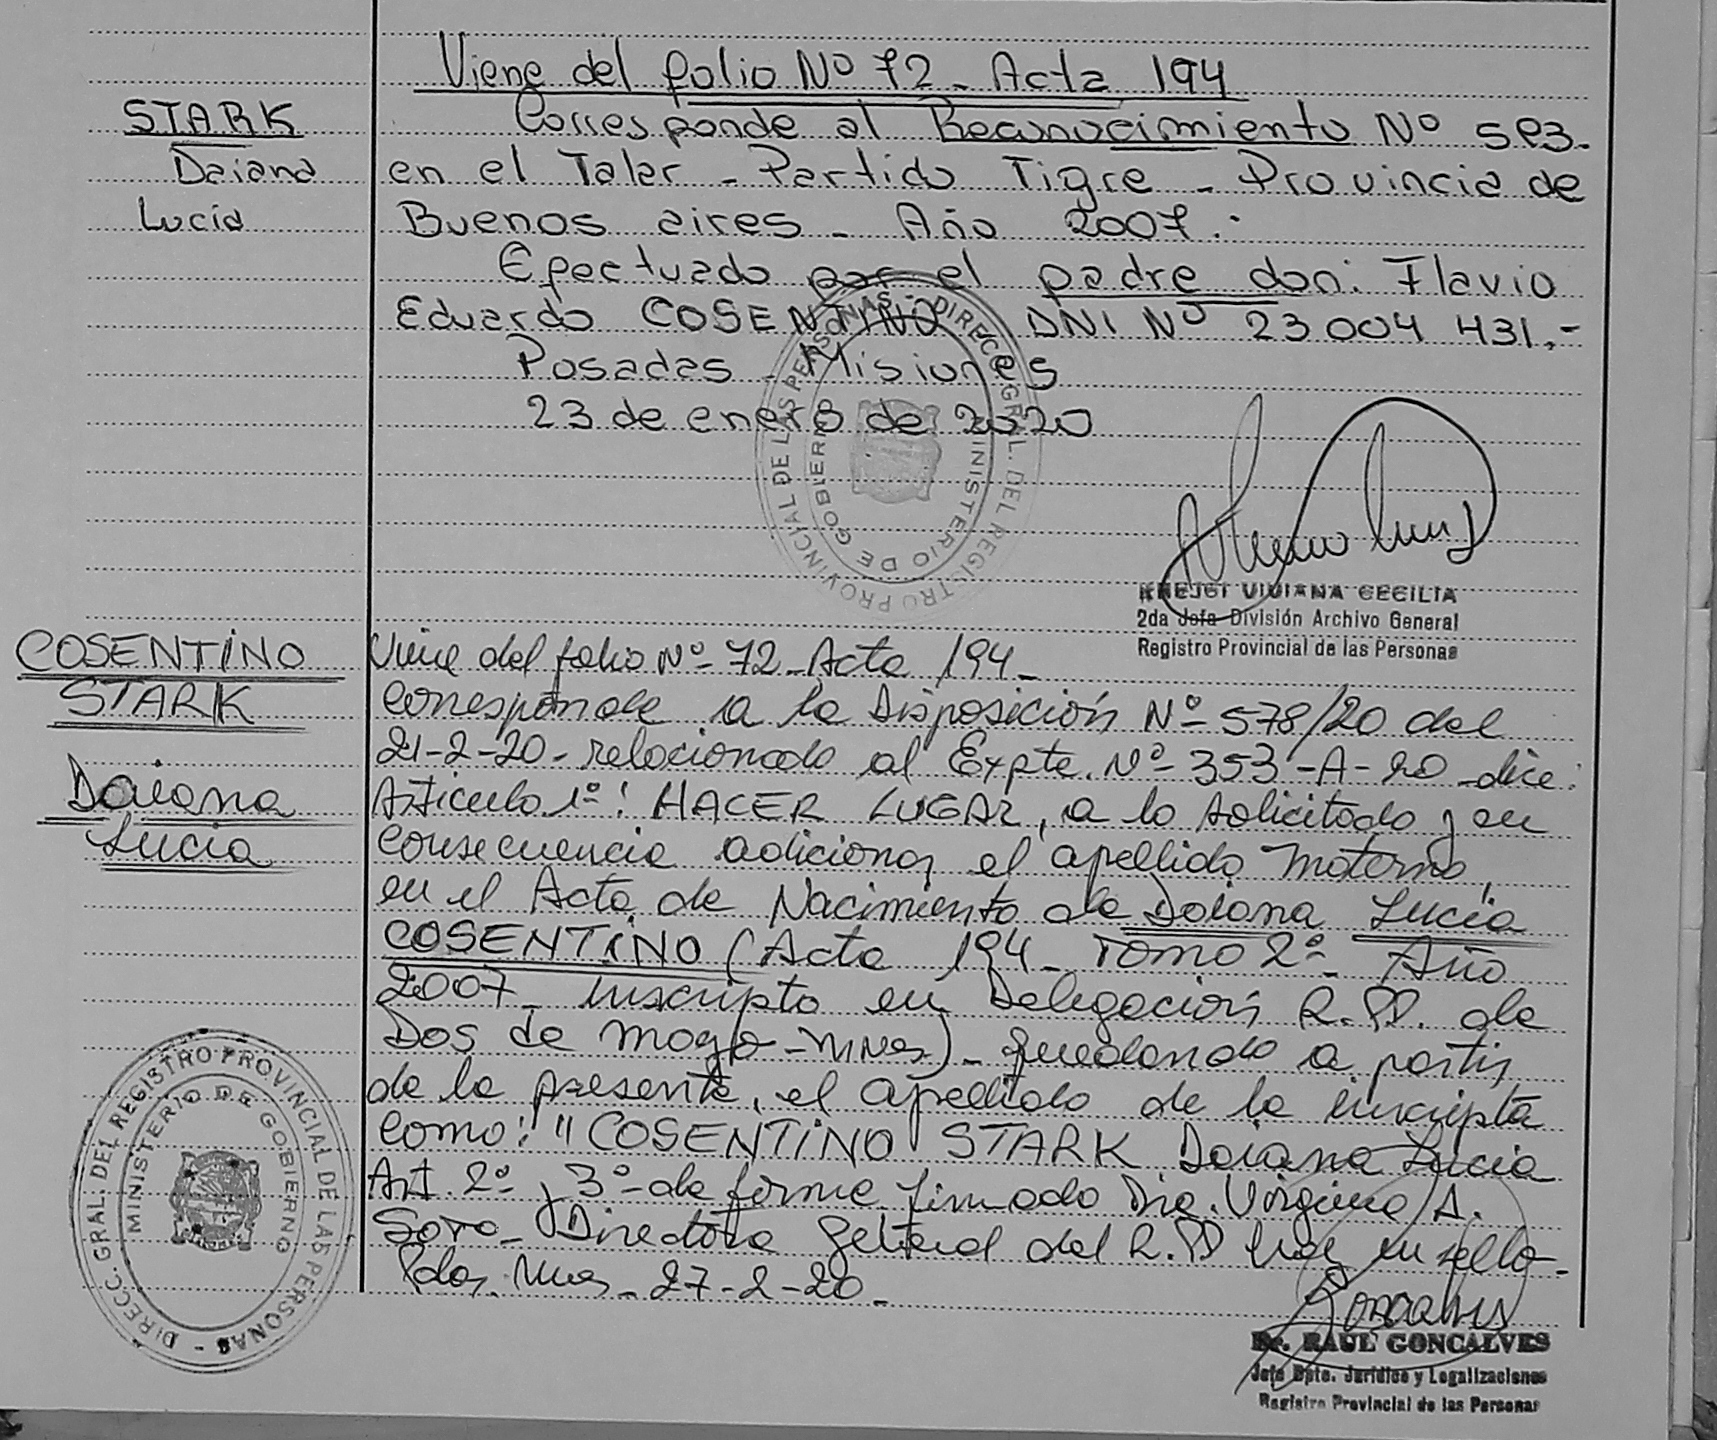 Viene del folio Nº 72 - Acta 194
STARK
Daiana
Lucia
Corresponde al Reconocimiento Nº 583-
en el Talar - Partido Tigre - Provincia de
Buenos aires - Año 2007.-
Efectuado por el padre don: Flavio
Eduardo COSENTINO DNI Nº 23 004 431.-
Posadas - Misiones
23 de enero de 2020
DIRECC. GRAL. DEL REGISTRO PROVINCIAL DE LAS PERSONAS -
MINISTERIO DE GOBIERNO
KREJCI VIVIANA CECILIA
2da Jefa División Archivo General
Registro Provincial de las Personas
COSENTINO
STARK
Daiana
Lucia
Viene del folio Nº 72 - Acta 194 -
Corresponde a la Disposición Nº 578/20 del
21-2-20 - relacionado al Expte. Nº 353-A-20 - dice:
Articulo 1º: HACER LUGAR, a lo solicitado y en
consecuencia adicionar el apellido materno,
en el Acta de Nacimiento de Daiana Lucia
COSENTINO (Acta 194 - Tomo 2º - Año
2007 - inscripto en Delegación R.PP. de
Dos de mayo - Mnes) - quedando a partir
de la presente, el apellido de la inscripta
como: "COSENTINO STARK Daiana Lucia
Art. 2º y 3º de forma firmado Dra. Virginia A.
Soto - Directora General del R.PP hay un sello -
Pdas. Mnes - 27-2-20 -
DIRECC. GRAL. DEL REGISTRO PROVINCIAL DE LAS PERSONAS -
MINISTERIO DE GOBIERNO
Dr. RAUL GONCALVES
Jefe Dpto. Jurídico y Legalizaciones
Registro Provincial de las Personas